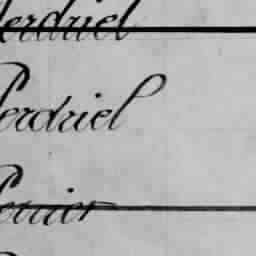 Perdriel
Perdriel
Perrier